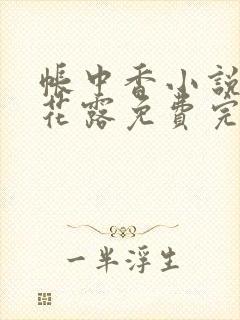 帳中香小說
花露免費完
一半浮生